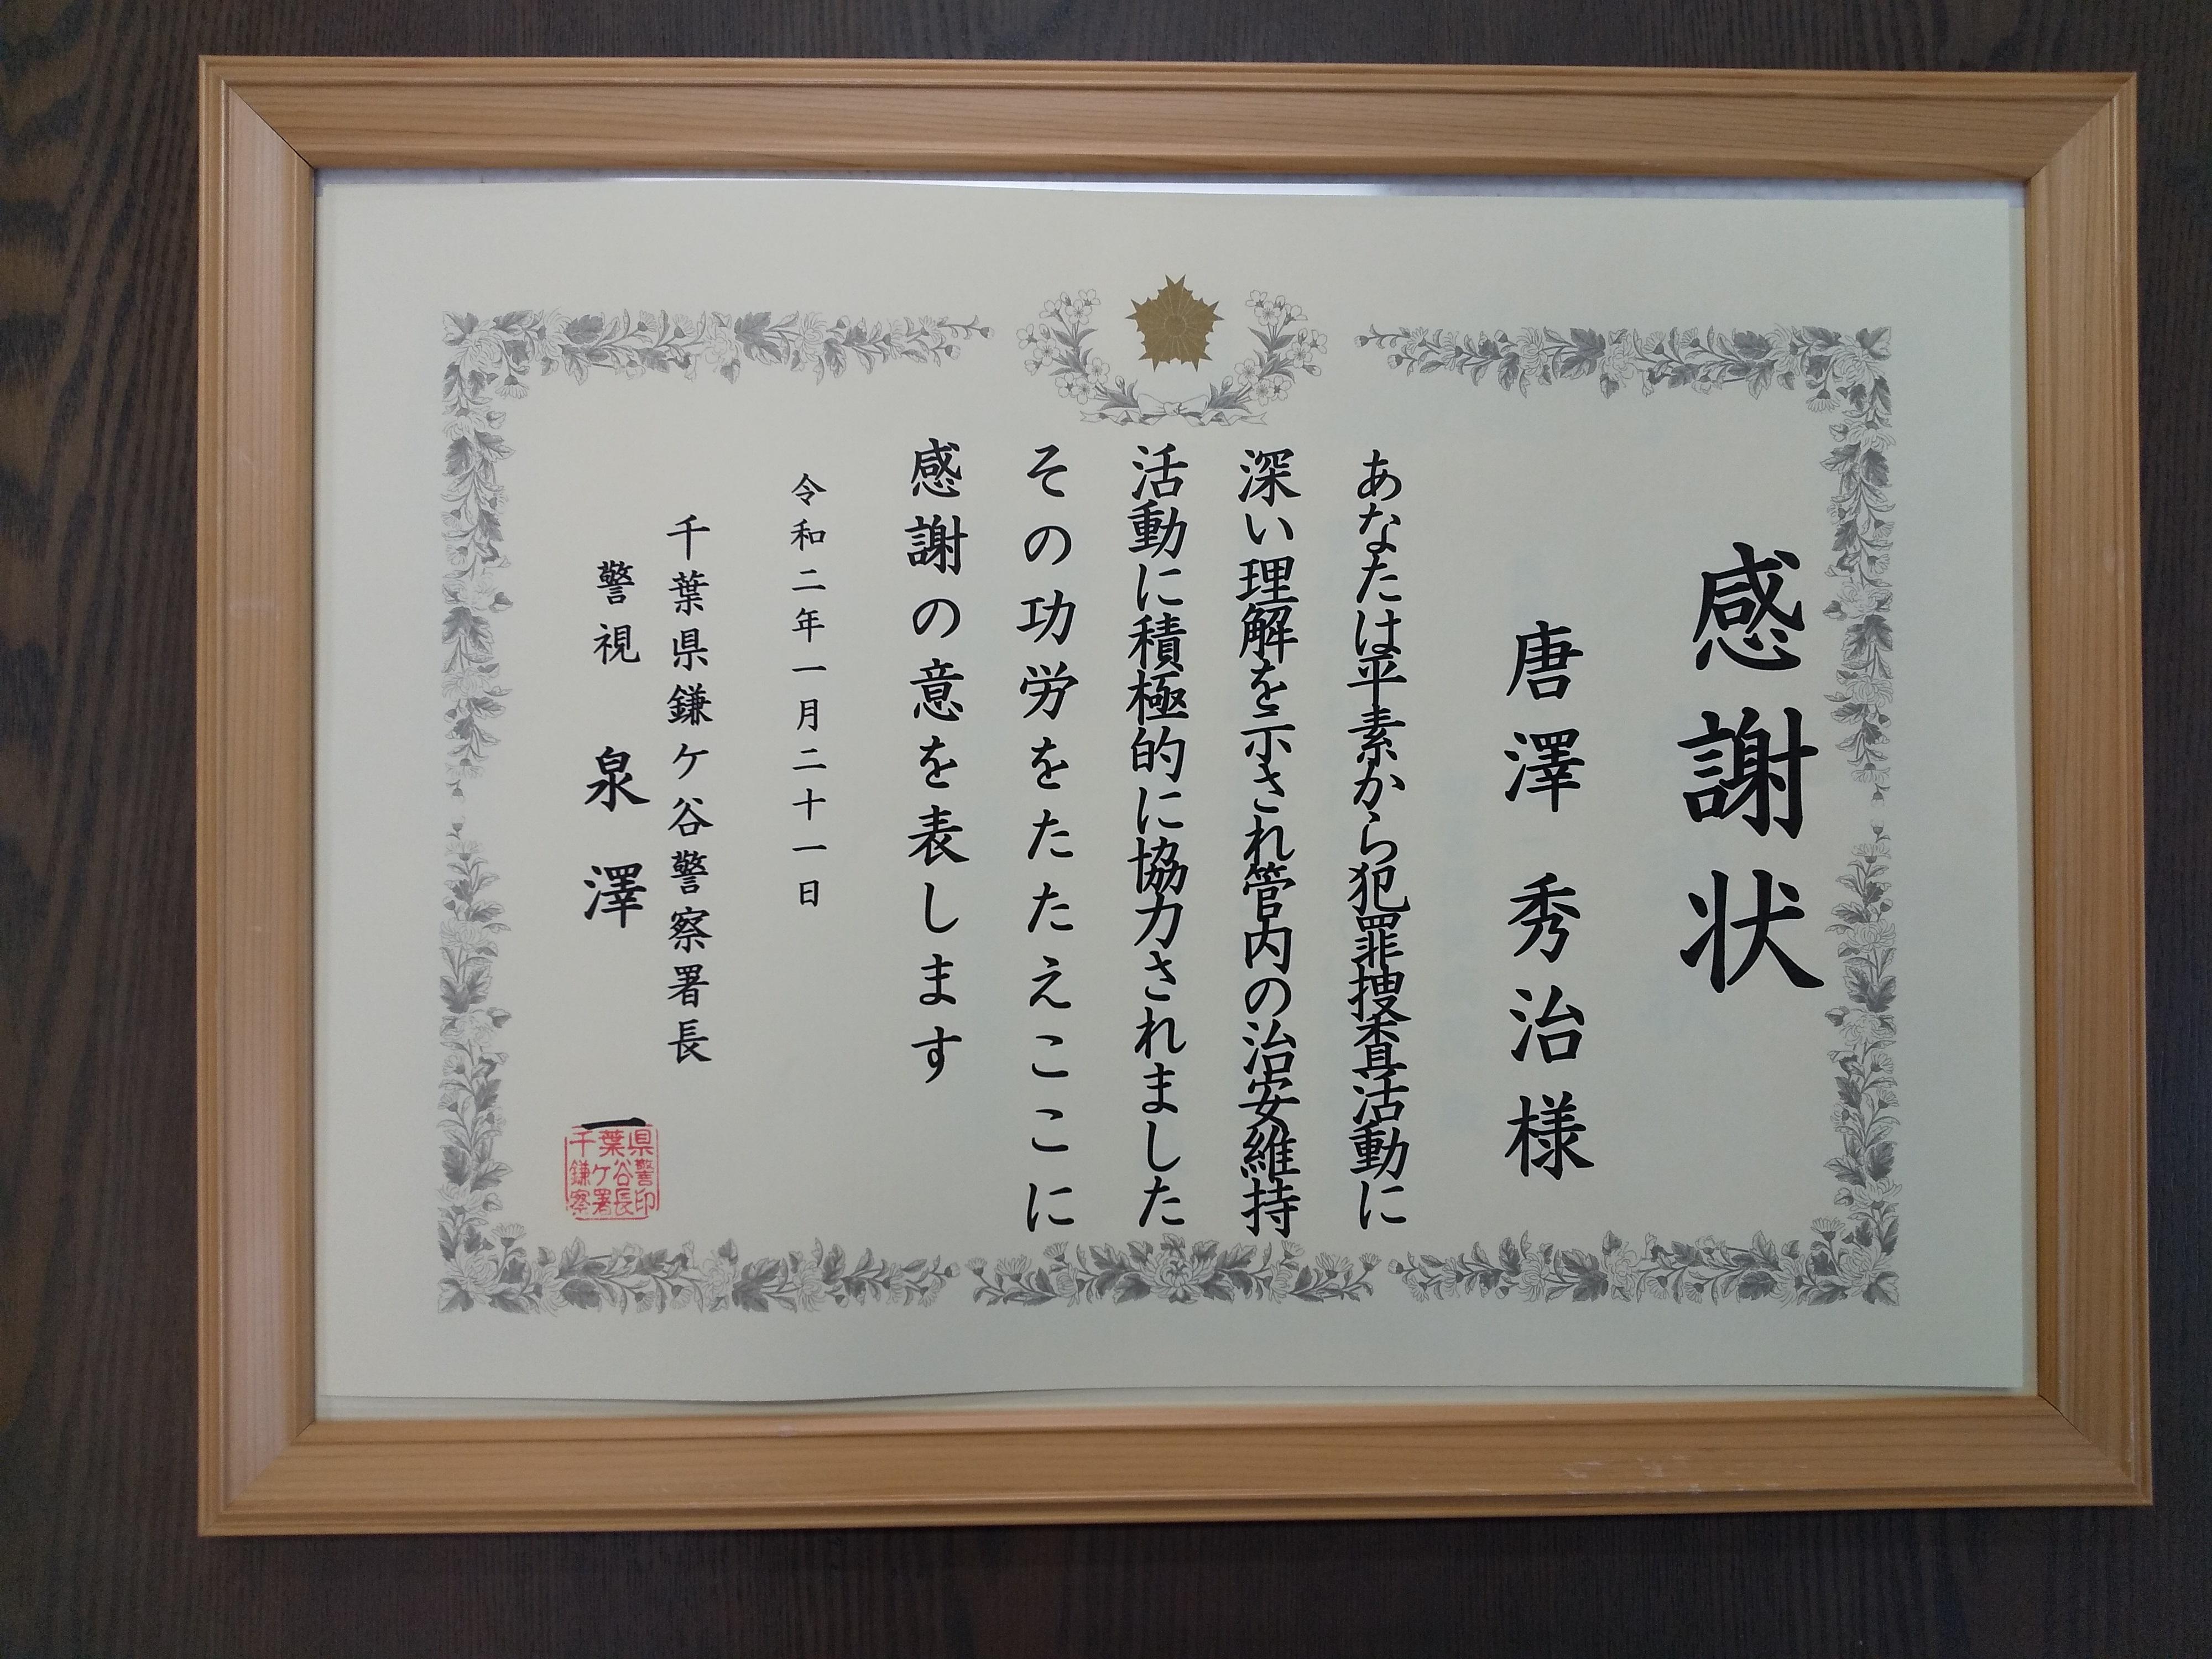 感謝状
唐澤秀治様
あなたは平素から犯罪捜査活動に
深い理解を示され管内の治安維持
活動に積極的に協力されました
その功労をたたえここに
感謝の意を表します
令和二年一月二十一日
千葉県鎌ケ谷警察署長
警視 泉澤 一
千葉県
鎌ケ谷警
察署長印